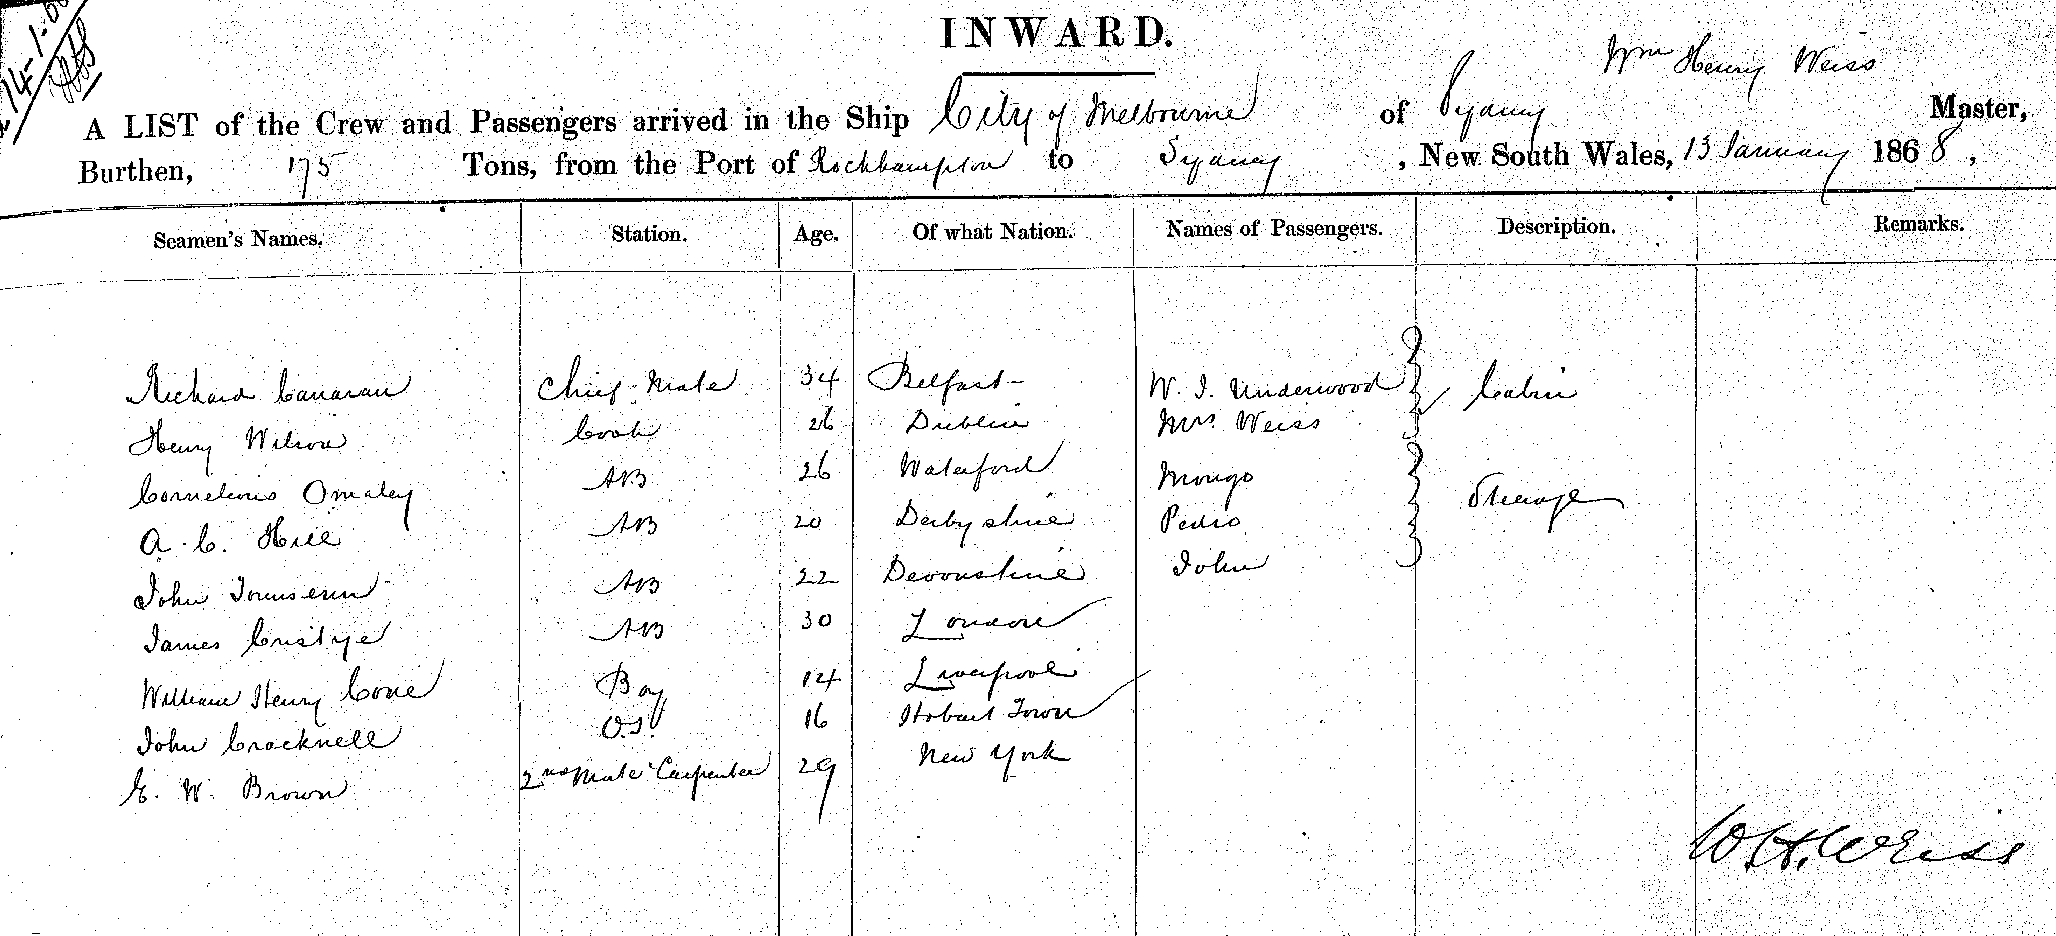 INWARD.
Wm Henry Weiss
A LIST of the Crew and Passengers arrived in the Ship City of Melbourne of Sydney Master,
Burthen, 175 Tons, from the Port of Rockhampton to Sydney, New South Wales, 13 January 1868,
Seamen's Names. Station. Age. Of what Nation. Names of Passengers. Description. Remarks.
Richard Canavan Chief Mate 34 Belfast W. J. Underwood Cabin
Henry Wilson Cook 26 Dublin Mrs Weiss
Cornelious Omaley AB 26 Waterford Mongo Steerage
A. C. Hill AB 20 Derbyshire Pedro
John Townsend AB 22 Devonshire John
James AB 30 London
William Henry Cone Boy 14 Liverpool
John Cracknell O.S. 16 Hobart Town
E. W. Brown 2nd Mate Carpenter 29 New York
W H. Weiss